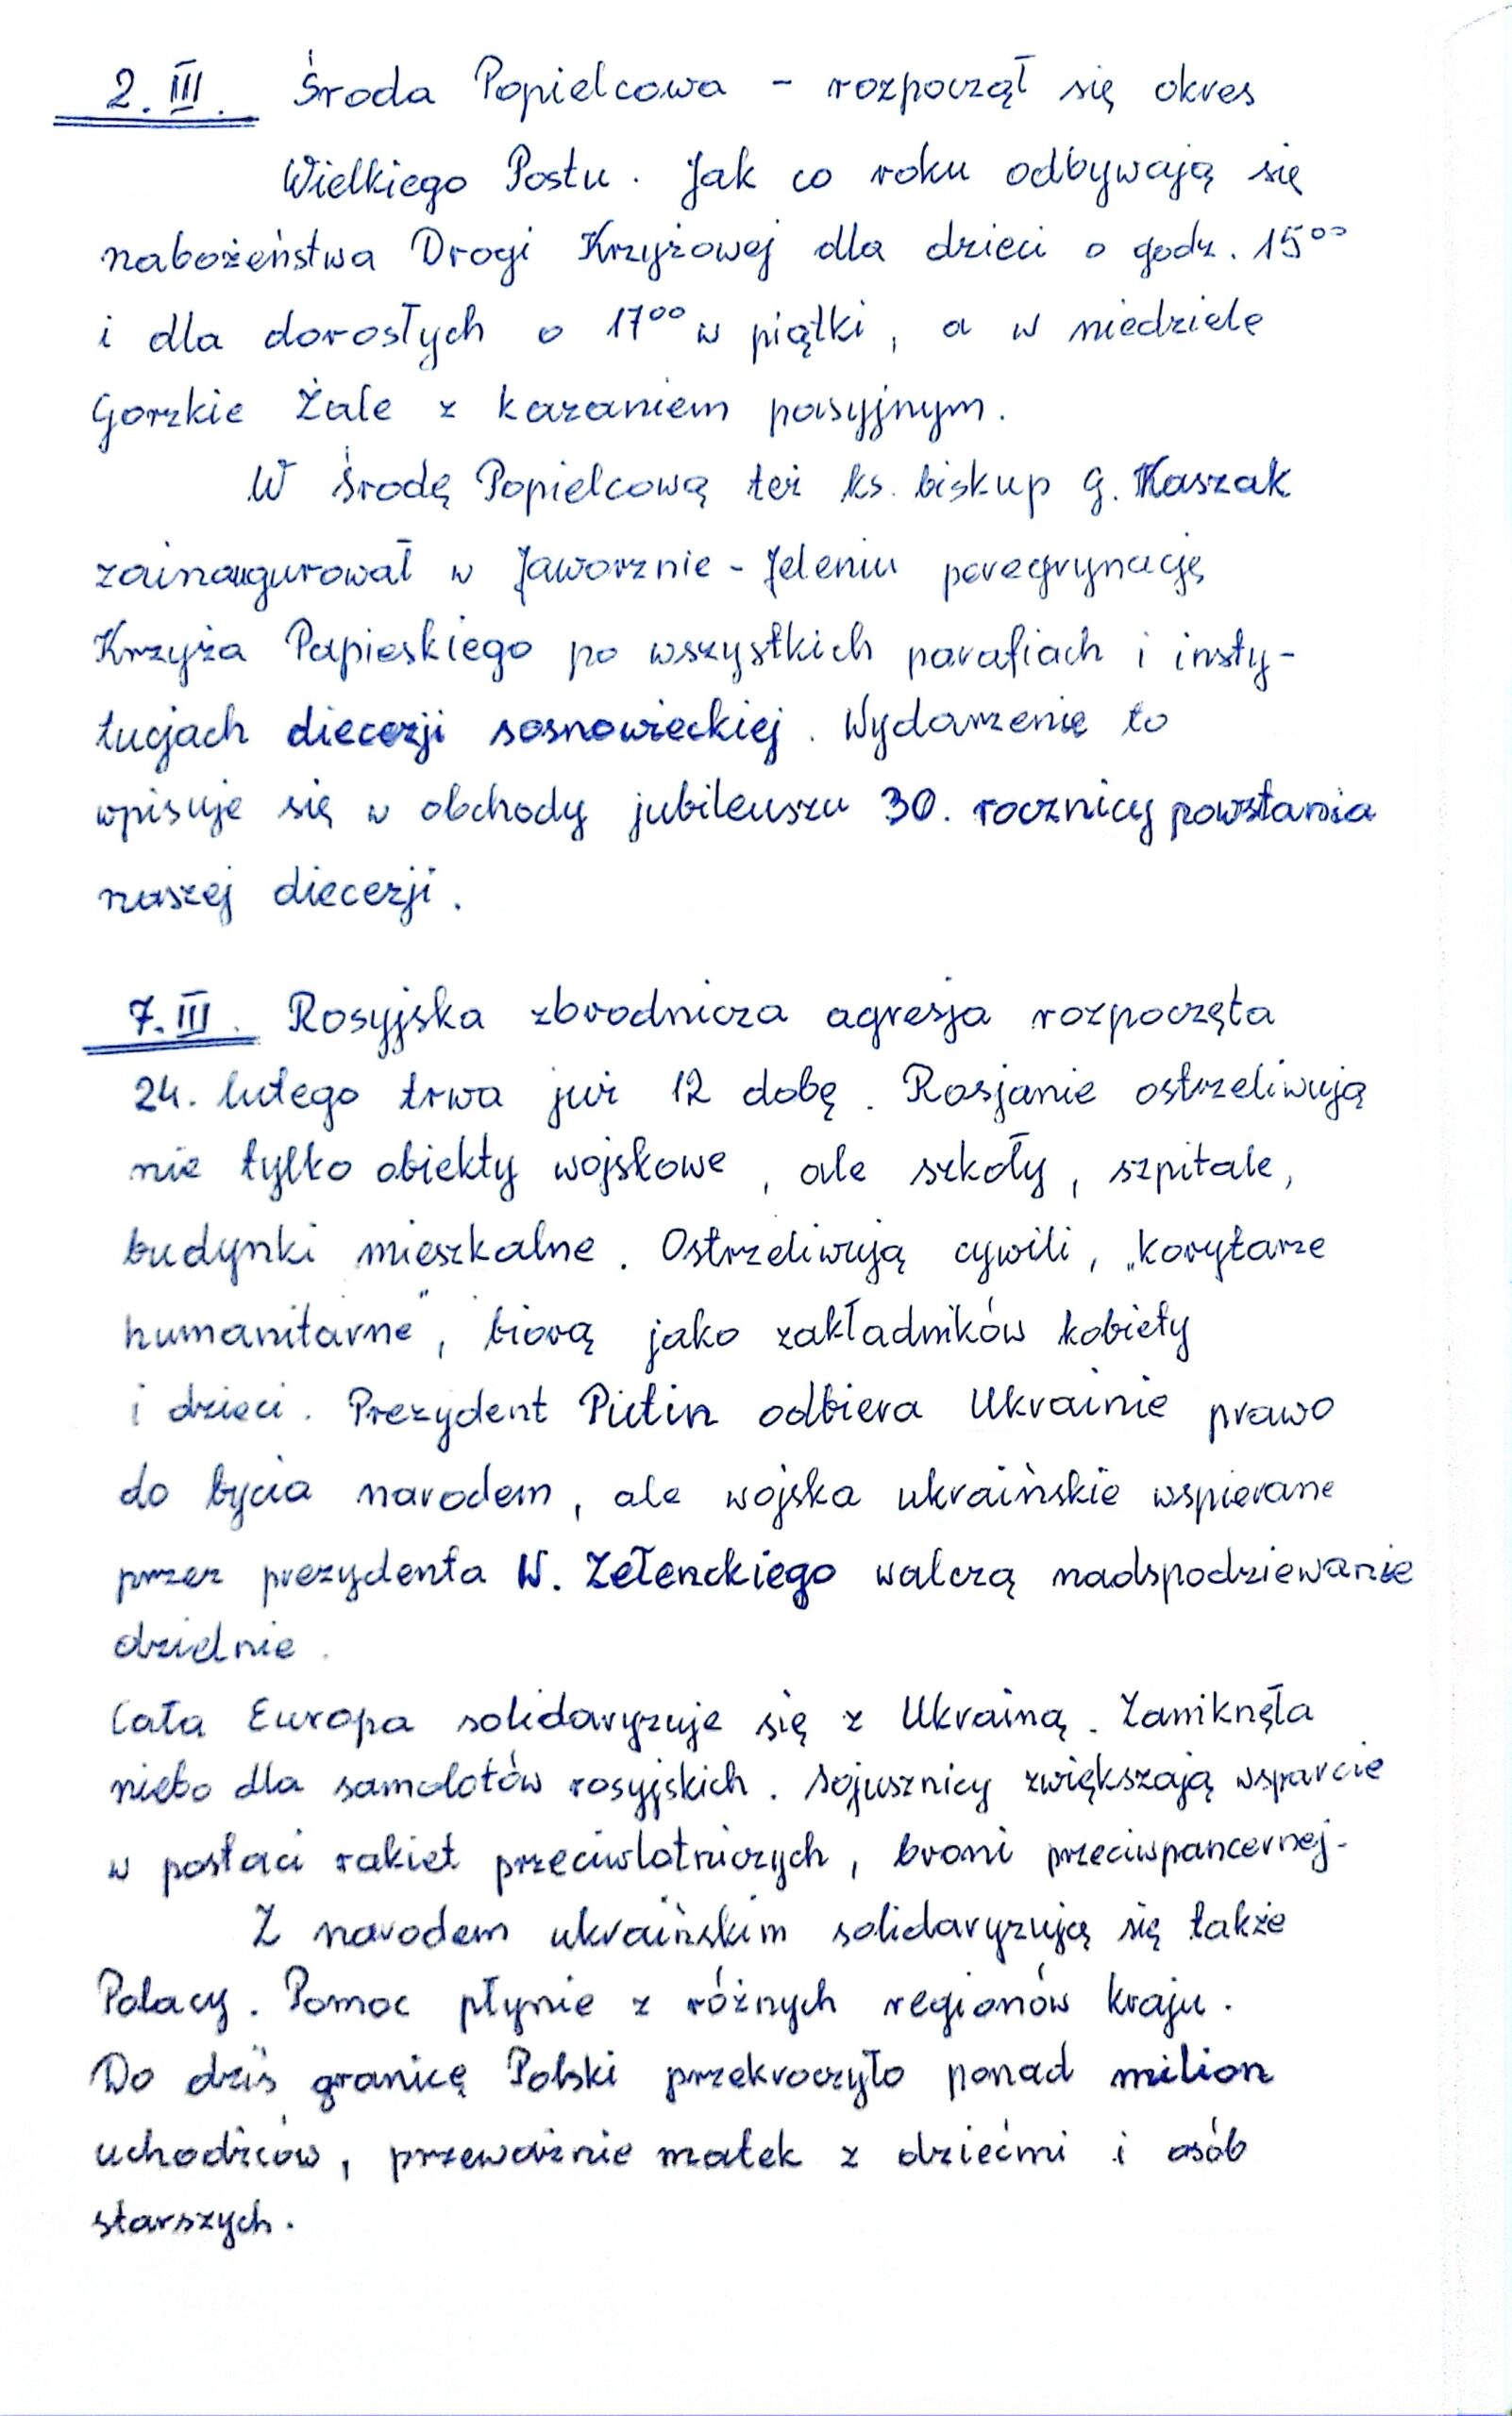 2. III. Środa Popielcowa - rozpoczął się okres
Wielkiego Postu. Jak co roku odbywają się
nabożeństwa Drogi Krzyżowej dla dzieci o godz. 15⁰⁰
i dla dorosłych o 17⁰⁰ w piątki, a w niedzielę
Gorzkie Żale z kazaniem pasyjnym.
W Środę Popielcową też ks. biskup G. Kaszak
zainaugurował w Jaworznie - Jeleniu peregrynację
Krzyża Papieskiego po wszystkich parafiach i insty-
tucjach diecezji sosnowieckiej. Wydarzenie to
wpisuje się w obchody jubileuszu 30. rocznicy powstania
naszej diecezji.
7. III. Rosyjska zbrodnicza agresja rozpoczęta
24. lutego trwa już 12 dobę. Rosjanie ostrzeliwują
nie tylko obiekty wojskowe, ale szkoły, szpitale,
budynki mieszkalne. Ostrzeliwują cywili, „korytarze
humanitarne", biorą jako zakładników kobiety
i dzieci. Prezydent Putin odbiera Ukrainie prawo
do bycia narodem, ale wojska ukraińskie wspierane
przez prezydenta W. Zełenckiego walczą nadspodziewanie
dzielnie.
Cała Europa solidaryzuje się z Ukrainą. Zamknęła
niebo dla samolotów rosyjskich. Sojusznicy zwiększają wsparcie
w postaci rakiet przeciwlotniczych, broni przeciwpancernej.
Z narodem ukraińskim solidaryzują się także
Polacy. Pomoc płynie z różnych regionów kraju.
Do dziś granicę Polski przekroczyło ponad milion
uchodźców, przeważnie matek z dziećmi i osób
starszych.